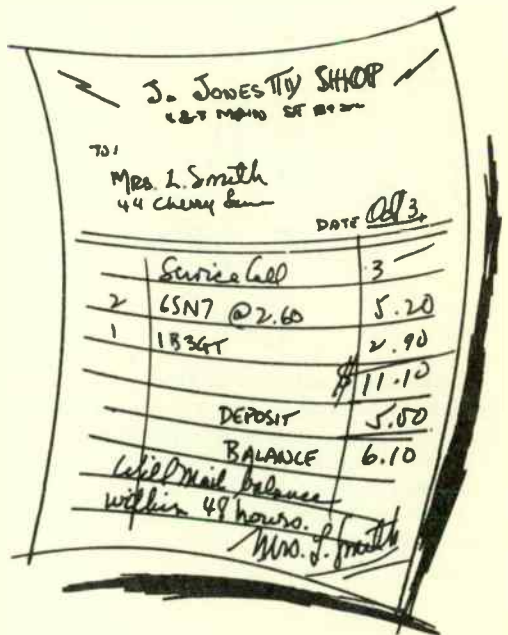 J. JONES TV SHOP
MAIN ST
TO:
MRS. L. Smith
44 Cherry
DATE Oct 3,
Service Call 3 —
2 6SN7 @ 2.60 5.20
1 1B3GT 2.90
$ 11.10
DEPOSIT 5.00
BALANCE 6.10
Will Mail balance
within 48 hours.
Mrs. L. Smith